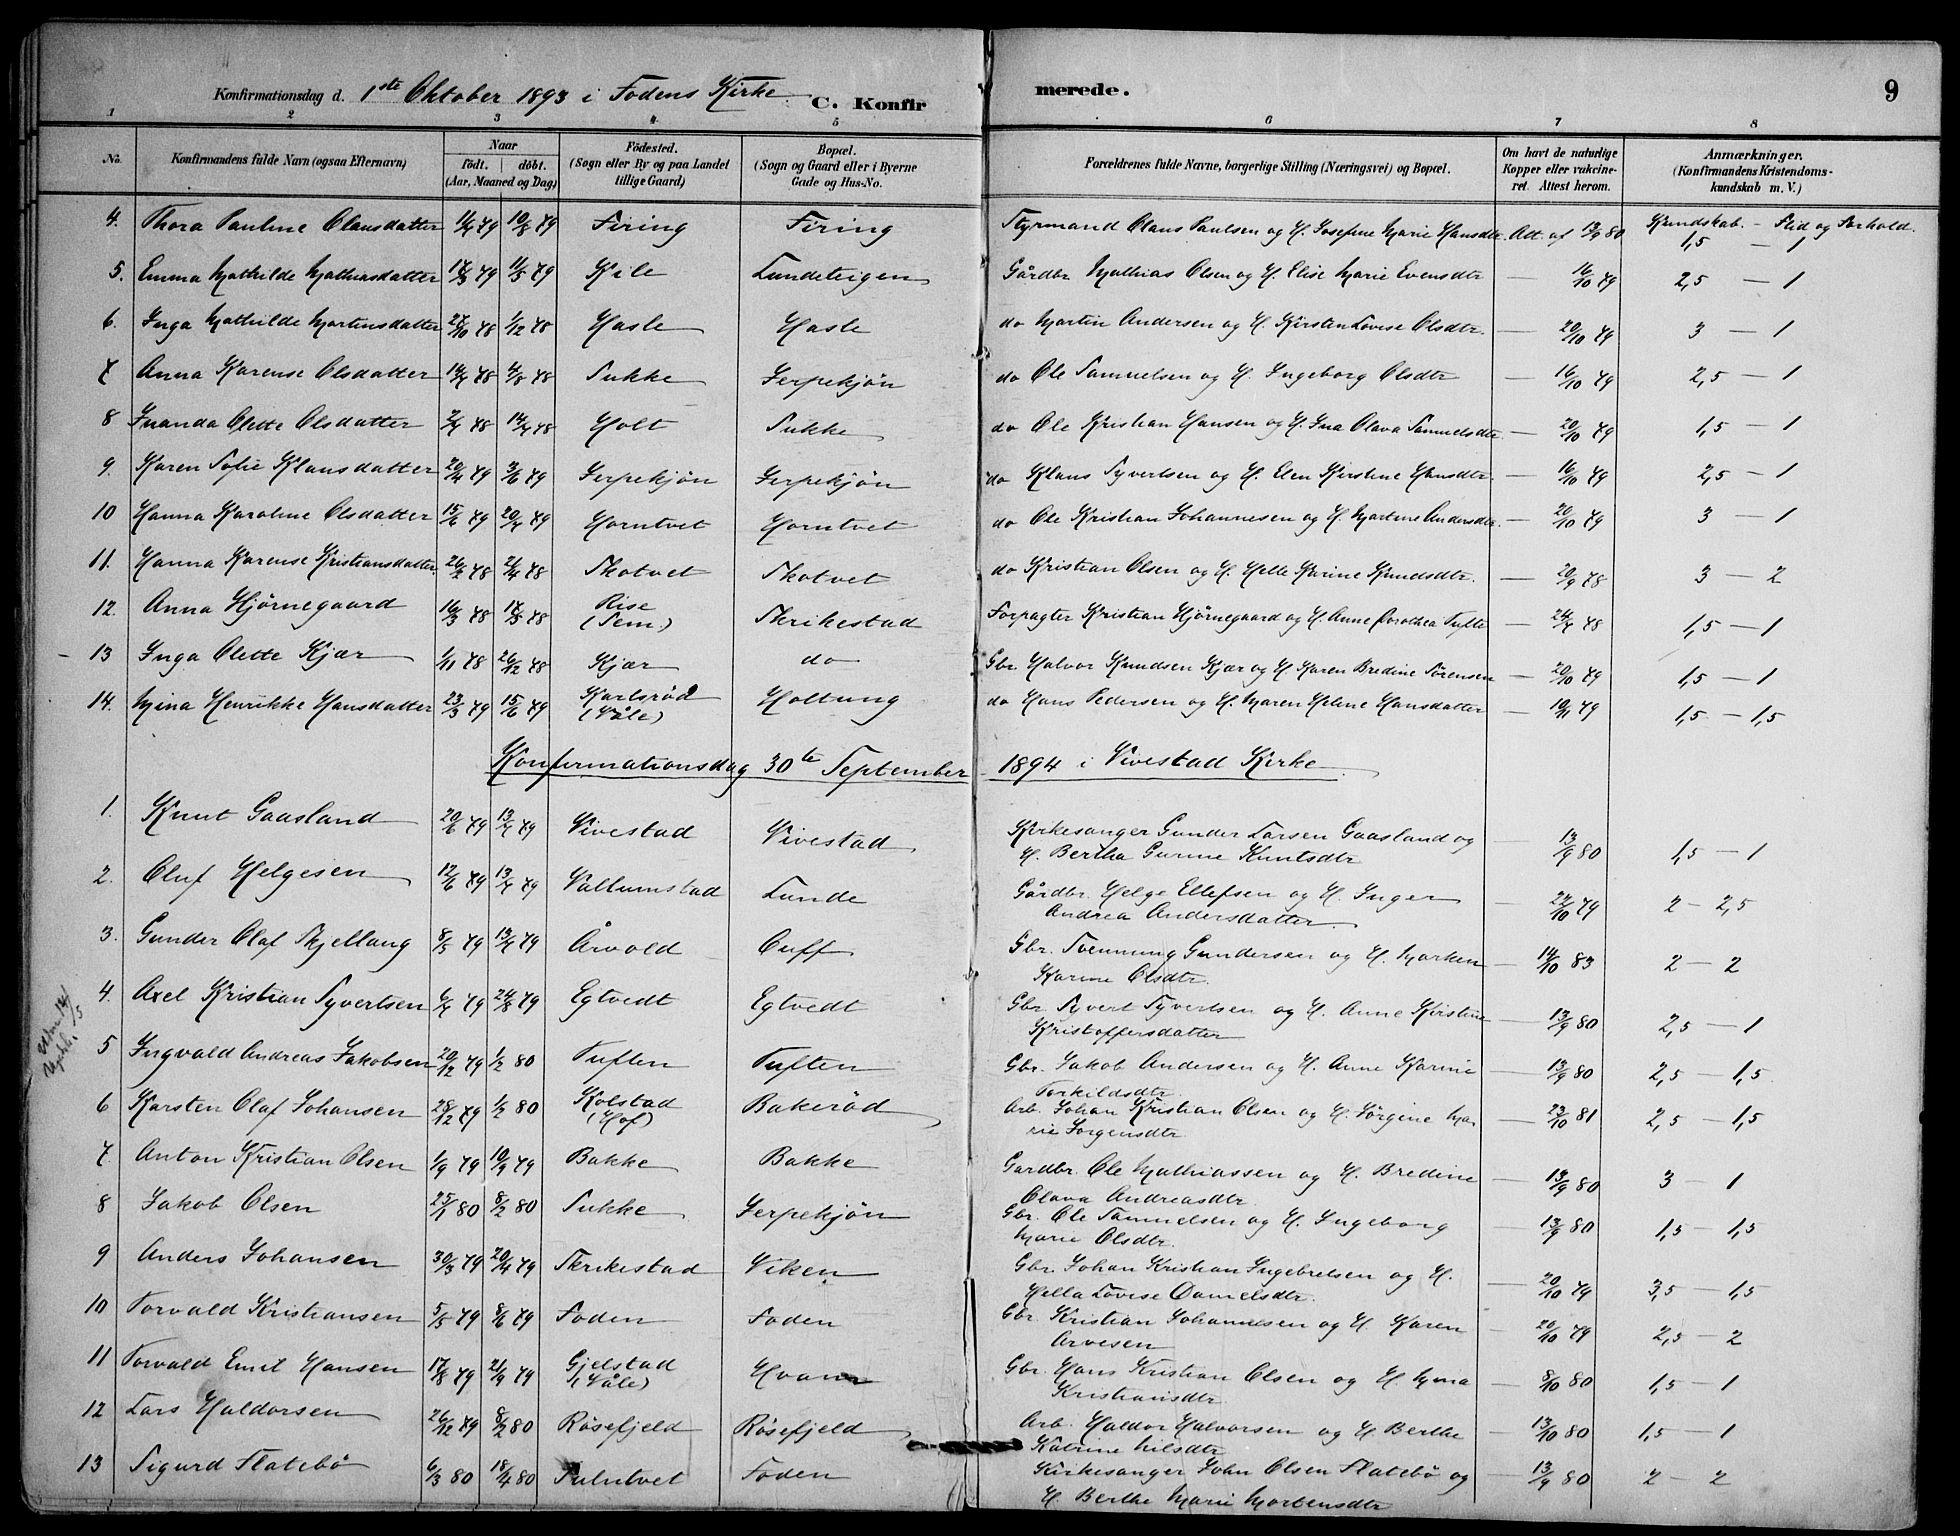 Konfirmationsdag d. 1ste Oktober 1893 i Fodens Kirke C. Konfirmerede. 9
1 2 3 4 5 6 7 8
No. Konfirmandens fulde Navn (ogsaa Efternavn) Naar födt. döbt. (Aar, Maaned og Dag) Födested. (Sogn eller By og paa Landet tillige Gaard) Bopæl. (Sogn og Gaard eller i Byerne Gade og Hus-No. Forældrenes fulde Navne, borgerlige Stilling (Næringsvei) og Bopæl. Om havt de naturlige Kopper eller vakcineret. Attest herom. Anmærkninger. (Konfirmandens Kristendomskundskab m. V.)
Kundskab. - Flid og Forhold.
4. Thora Pauline Olausdatter 79 10/8 79 Firing Firing Styrmand Olaus Paulsen og H. Josefine Marie Hansdtr. Att. af 13/9 80 1,5 — 1
5. Emma Mathilde Mathiasdatter 79 11/5 79 Kile Lundeteigen Gårdbr Mathias Olsen og H. Elise Marie Evensdtr — 16/10 79 2,5 — 1
6. Inga Mathilde Martinsdatter 27/10 78 1/12 78 Hasle Hasle do Martin Andersen og H. Kirsten Lovise Olsdtr. — 20/10 79 3 — 1
7 Anna Karense Olsdatter 14/7 78 4/8 78 Sukke Jerpekjøn do Ole Samuelsen og H. Ingeborg Olsdtr — 16/10 79 2,5 — 1
8 Iranda Olette Olsdatter 2/7 78 14/7 78 Holt Sukke do Ole Kristian Hansen og H. Ina Olava Samuelsdtr — 20/10 79 1,5 — 1
9. Karen Sofie Klausdatter 20/4 79 3/6 79 Jerpekjøn Jerpekjøn do Klaus Syvertsen og H. Elen Kirstine Hansdtr. — 16/10 79 2,5 — 1
10 Hanna Karoline Olsdatter 15/6 79 20/7 79 Horntvet Horntvet do Ole Kristian Johannesen og H. Martine Andersdtr. — 20/10 79 3 — 1
11. Hanna Karense Kristiansdatter. 26/2 78 2/4 78 Skotvet Skotvet do Kristian Olsen og H. Helle Karine Knudsdtr. — 20/9 78 3 — 2
12. Anna Hjørnegaard 16/3 78 17/5 78 Rise (Sem.) Skrikestad Forpagter Kristian Hjørnegaard og H. Anne Dorothea Tufte — 24/7 78 1,5 — 1
13 Inga Olette Kjær 1/11 78 26/12 78 Kjær do Gbr. Halvor Knudsen Kjær og H. Karen Bredine Sørensen — 20/10 79 1,5 — 1
14. Mina Henrikke Hansdatter 23/3 79 15/6 79 Karlsröd (Våle) Holtung do Hans Pedersen og H. Maren Helene Hansdatter — 10/11 79 1,5 — 1,5
Konfirmationsdag 30te September 1894 i Vivestad Kirke
1. Knut Gaasland 20/6 79 13/7 79 Vivestad Vivestad Kirkesanger Gunder Larsen Gaasland og
H. Bertha Gurine Knutsdtr — 13/9 80 1,5 — 1
2. Oluf Helgesen 12/6 79 13/7 79 Vallumstad Lunde Gårdbr. Helge Ellefsen og H. Inger
Andrea Andersdatter — 27/10 79 2 — 2,5
3. Gunder Olaf Skjellaug 8/5 79 13/7 79 Årvold Ouff Gbr. Svennung Gundersen og H. Marken
Karine Olsdtr. — 14/10 83 2 — 2
4. Axel Kristian Syvertsen 6/7 79 24/8 79 Egtvedt Egtvedt Gbr Syvert Syvertsen og H. Anne Kirstine
Kristoffersdatter — 13/9 80 2,5 — 1
5 Ingvald Andreas Jakobsen 20/12 79 1/2 80 Tuften Tuften Gbr. Jakob Andersen og H. Anne Karine
Torkildsdtr — 13/9 80 2,5 — 1,5
6 Karsten Olaf Johansen 28/12 79 1/2 80 Kolstad (Hof) Bakeröd Arb. Johan Kristian Olsen og H. Jörgine Ma-
rie Jorgensdtr — 23/10 81 2,5 — 1,5
7. Anton Kristian Olsen 1/9 79 10/9 79 Bakke Bakke Gardbr. Ole Mathiassen og H. Bredine
Olava Andreasdtr — 13/9 80 3 — 1
8 Jakob Olsen 25/1 80 8/2 80 Sukke Jerpekjön Gbr. Ole Samuelsen og H. Ingeborg
Marie Olsdtr. — 13/9 80 1,5 — 1,5
9 Anders Johansen 30/3 79 20/4 79 Skrikestad Viken Gbr. Johan Kristian Ingebretsen og H.
Hella Lovise Danielsdtr. — 20/10 79 3,5 — 1,5
10 Torvald Kristiansen 5/5 79 8/6 79 Foden Foden Gbr. Kristian Johannesen og H. Karen
Arvesen — 20/10 79 2,5 — 2
11 Torvald Emil Hansen 17/8 79 21/9 79 Gjelstad (Våle) Gbr. Hans Kristian Olsen og H. Mina
Kristiansdtr. — 8/10 80 1,5 — 1
12 Lars Haldorsen 26/12 79 8/2 80 Rösefjeld Rösefjeld Arb. Haldor Halvorsen og H. Berthe
Katrine Nilsdtr — 13/10 80 1,5 — 1
13 Sigurd Flatebö 6/3 80 18/4 80 Sulutvet Foden Kirkesanger John Olsen Flatebö og
H. Berthe Marie Mortensdtr — 13/9 80 2 — 2